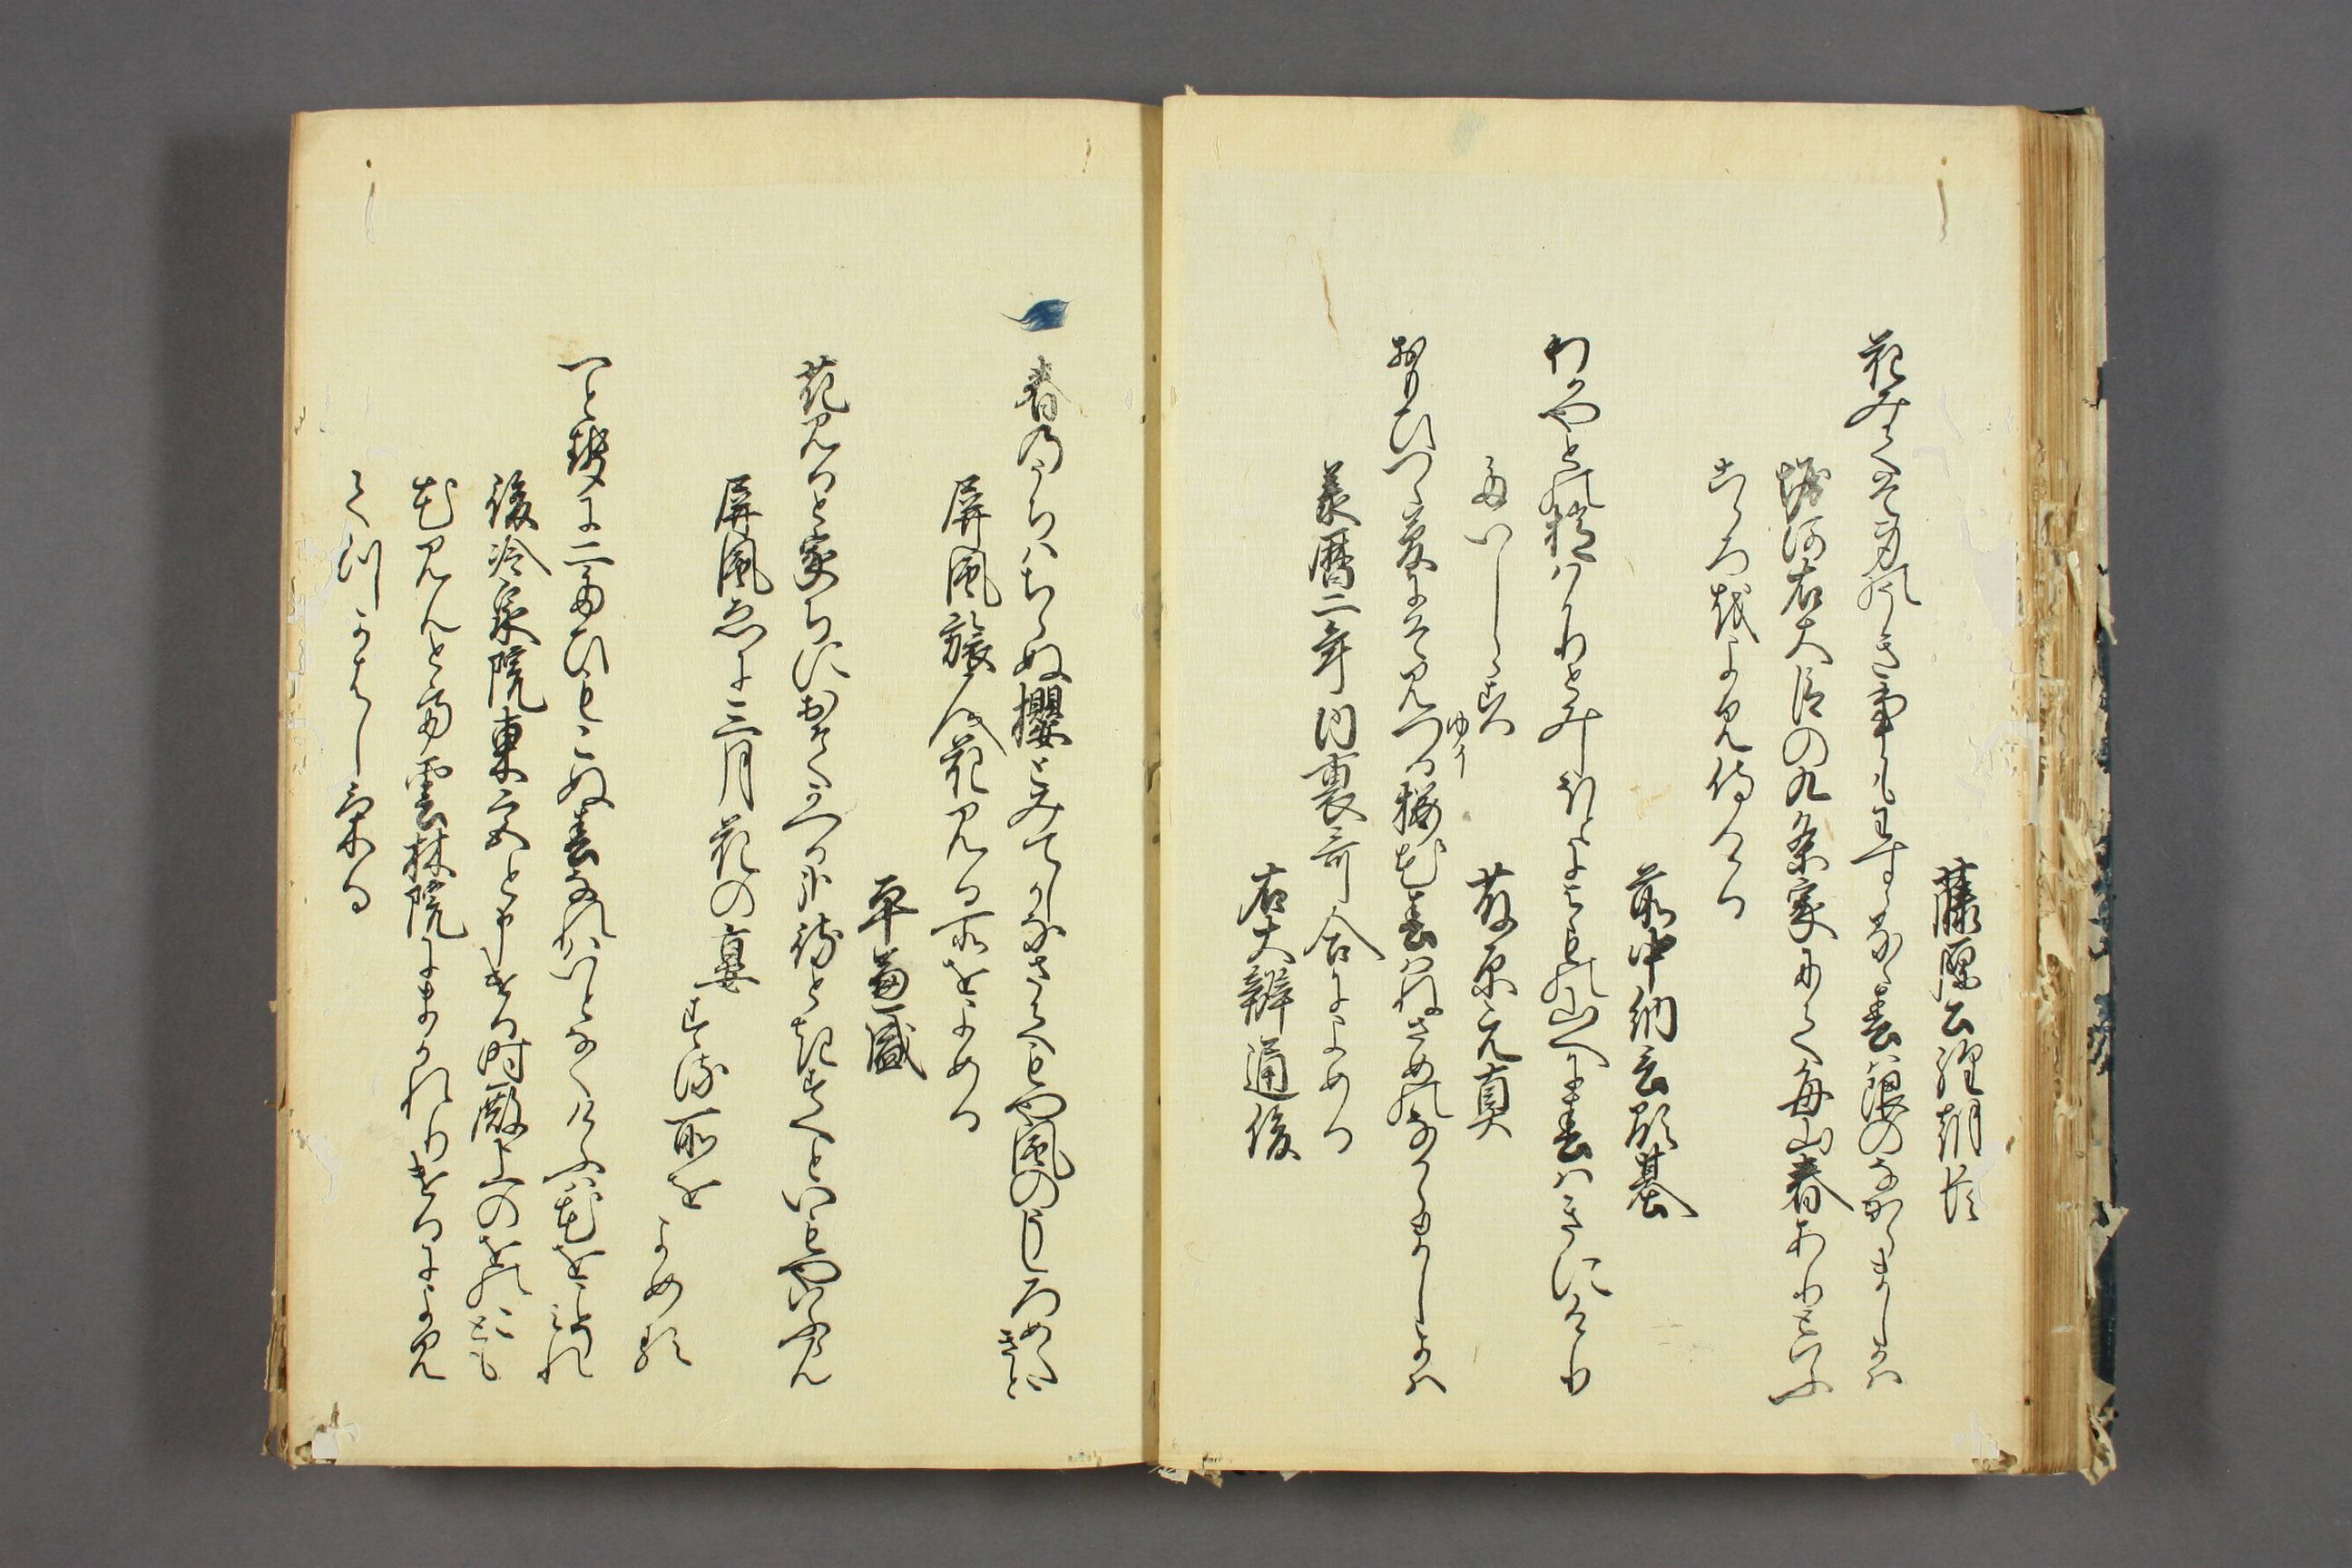 藤原公経朝臣
花みてそ身のうき事もわすらるゝ春は限のなからましかは
堀河右大臣の九条家にて毎山春ありといふ
こゝろをよみ侍ける
前中納言顕基
わかやとの梢はかりとみしほとによもの山へに春はきにけり
たいしらす
藤原元真
おもひつゝ夢にそ見つる桜花春はねさめのなからましかは
ゆイ
承暦二年内裏哥合によめる
右大辨通俊
春のうちはちらぬ櫻とみてしかなさてもや風のうしろめたきと
屏風旅人花見る所をよめる
平兼盛
花見ると家ちにおそくかへる哉待とき過といもやいふらん
屏風ゑに三月花の宴する所を
よめる
一とせに二たひもこぬ春なれはいとなくけふは花をこそみれ
後冷泉院東宮と申ける時殿上のをのことも
花見んとて雲林院にまかれりけるによみ
てつかはしける